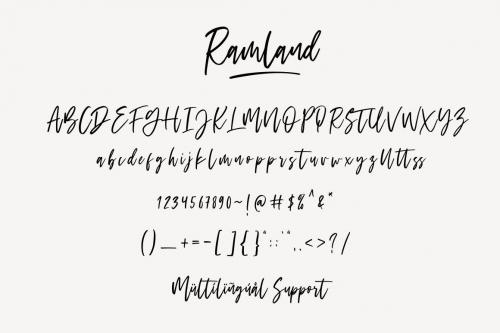 Ramland
ABCDEFGHIJKLMNOPQRSTUVWXYZ
abcdefghijklmnopqrstuvwxyzUttss
1234567890~!@#$%^&*
()_+=-[]{}":;'",.<>?/
Mültilïñgúâl Support